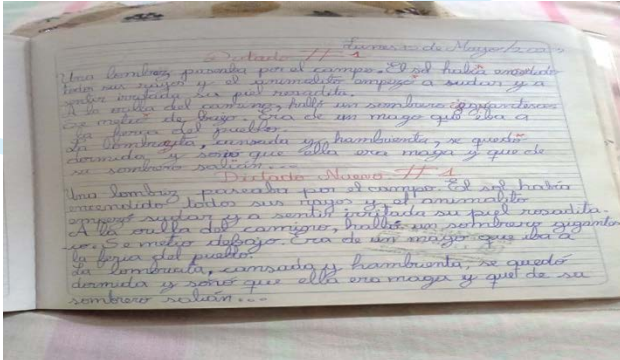 Lunes 10 de Mayo/
Dictado # 1
Una lombriz paseaba por el campo. El sol había encendido
todos sus rayos y el animalito empezó a sudar y a
sentir irritada su piel rosadita.
A la orilla del camino, halló un sombrero gigantesco
Se metió de bajo. Era de un mago que eba a
la feria del pueblo.
La lombrecita, cansada y hambrienta, se quedó
dormida y soñó que ella era maga y que de
su sombrero salían...
Dictado Nuevo # 1
Una lombriz paseaba por el campo. El sol había
encendido todos sus rayos y el animalito
empezó sudar y a sentir irritada su piel rosadita.
A la orilla del camino, halló un sombrero gigantes
co. Se metió debajo. Era de un mago que iba a
la feria del pueblo.
La lombricita, cansada y hambrienta, se quedó
dormida y soñó que ella era maga y que de su
sombrero salían...